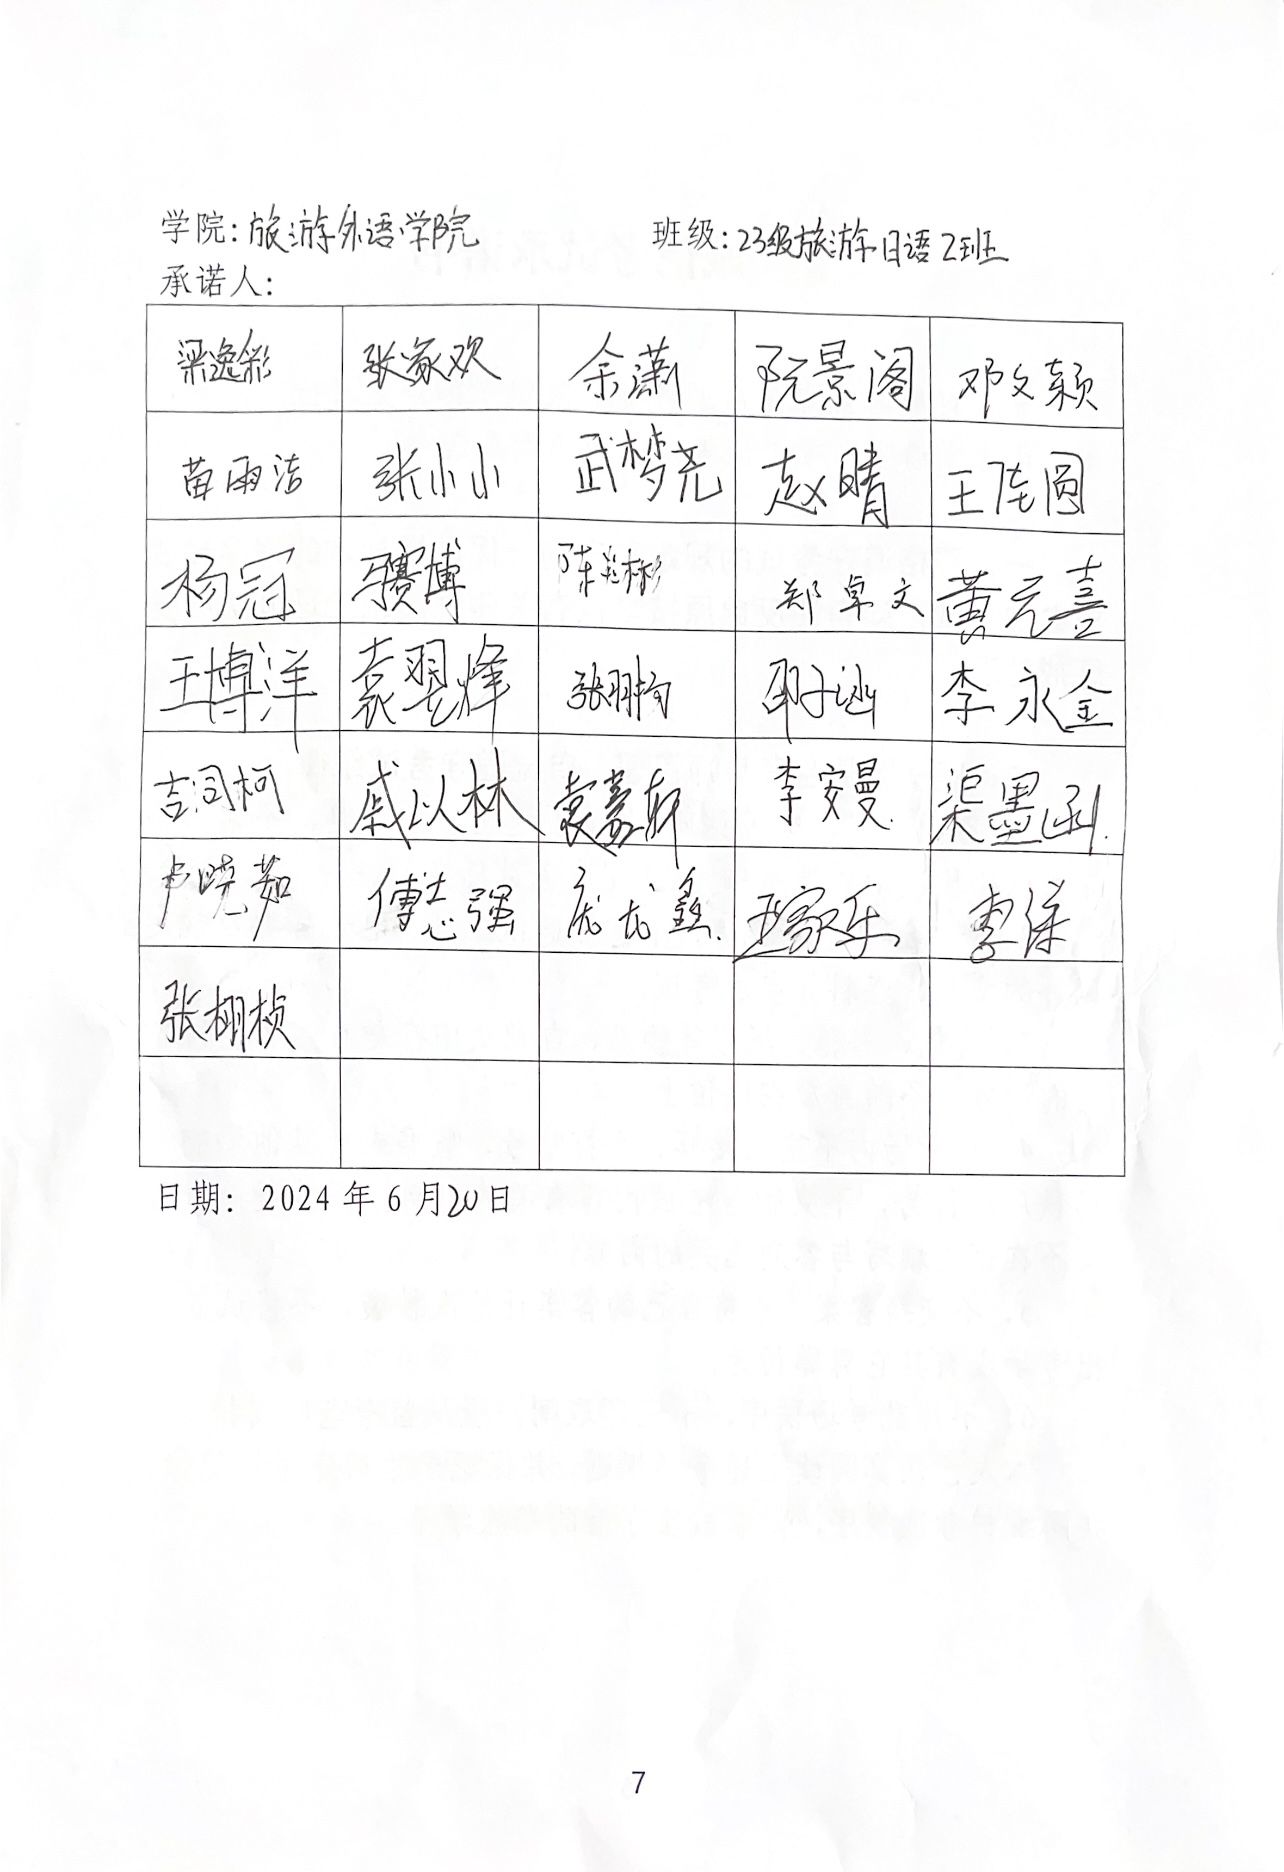 学院：旅游外语学院 班级：23级旅游日语2班
承诺人：
梁逸彩 张家欢 余潇 阮景阁 邓文颖
苗雨洁 张小小 武梦尧 赵晴 王佳圆
杨冠 骞博 陈 彬 郑卓文 黄元喜
王博洋 袁翌烽 张翔 邵子涵 李永金
吉润柯 戚以林 袁豪轩 李安曼 渠墨函
卢晓茹 傅志强 庞龙鑫 王家乐 李洋
张栩桢
日期：2024年6月20日
7